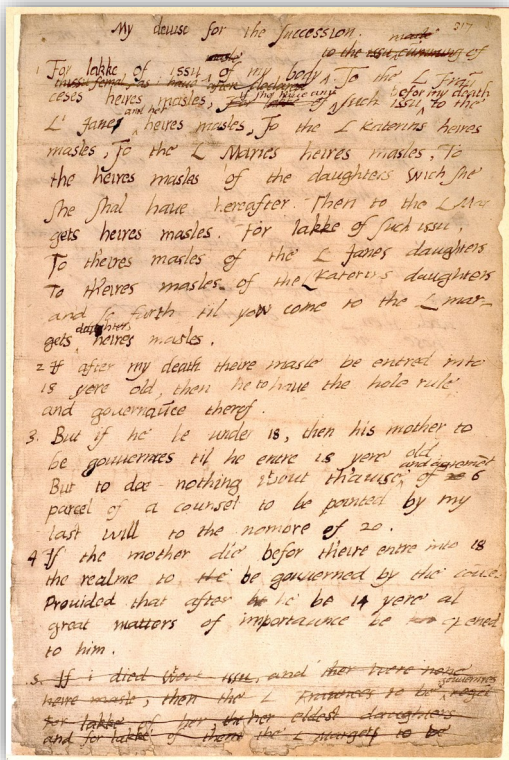 My deuise for the Succession. 317
1 For lakke of issu of my body To the L Frau
ceses heires masles, if she haue any such issu befor my death to the
L' Janes and her heires masles, To the L Katerins heires
masles, To the L Maries heires masles, To
the heires masles of the daughters wich she
she shal haue hereafter. Then to the L Mar
gets heires masles. For lakke of such issu,
To theires masles of the L Janes daughters
To theires masles of the L Katerins daughters
and so forth til yow come to the L mar-
gets daughters heires masles.
2 If after my death theire masle be entred into
18 yere old, then he to haue the hole rule
and gouernauce therof.
3. But if he be under 18, then his mother to
be gouuernres til he entre 18 yere old
But to doe nothing wout thauise and agremet of 6
parcel of a counsel to be pointed by my
last will to the nombre of 20.
4 If the mother die befor theire entre into 18
the realme to be gouuerned by the couce
Prouided that after he be 14 yere al
great matters of importaunce be opened
to him.
5. If i died wout issu, and ther were none
heire masle, then the L Fraunces to be gouuernres regét
for lakke of her, her eldest daughters
and for lakke of them the L Marget to be